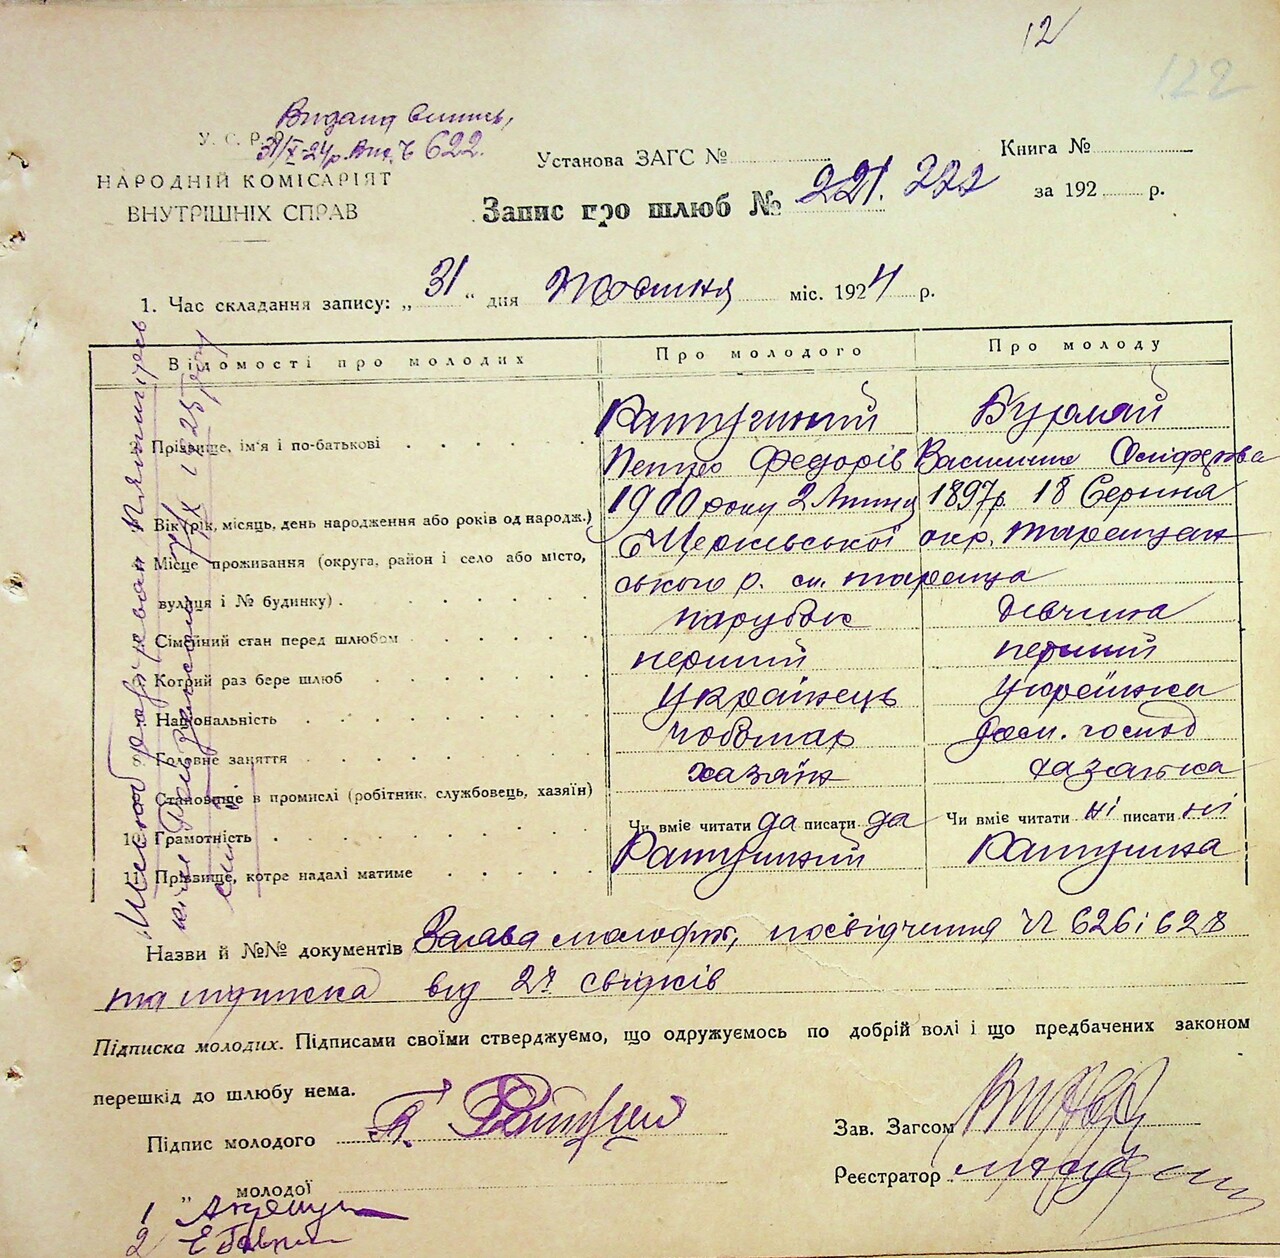 12
122
Видано
31/X 24 р. Вид. Ч 622.
У. С. Р. Р.
НАРОДНІЙ КОМІСАРІЯТ
ВНУТРІШНІХ СПРАВ
Установа ЗАГС №
Книга №
Запис про шлюб № 221. 222
за 192 р.
1. Час складання запису: „ 31 “ дня Жовтня міс. 1924 р.
Відомості про молодих Про молодого Про молоду
Ратушний Бурлай
Прізвище, ім'я і по-батькові Петро Федорів Василина
Вік (рік, місяць, день народження або років од народж.) 1900 року 2 Липця 1897 р. 18 Серпня
Місце проживання (округа, район і село або місто, Б Церківської окр. Таращан
вулиця і № будинку) . ського р. м. Тараща
Сімейний стан перед шлюбом парубок дівчина
Котрий раз бере шлюб перший перший
Національність Українець Українка
Головне заняття Чоботар дом. господ
Становище в промислі (робітник, службовець, хазяїн) хазяїн хазяйка
10. Грамотність Чи вміє читати да писати да Чи вміє читати ні писати ні
11. Прізвище, котре надалі матиме Ратушний Ратушна
Шлюб
IX 1925 року
Назви й №№ документів Заява молодих, посвідчення Ч 626 і 627
та від 2х свідків
Підписка молодих. Підписами своїми стверджуємо, що одружуємось по добрій волі і що предбачених законом
перешкід до шлюбу нема.
Підпис молодого П. Ратушний
Зав. Загсом
„ молодої
Реєстратор
1
2